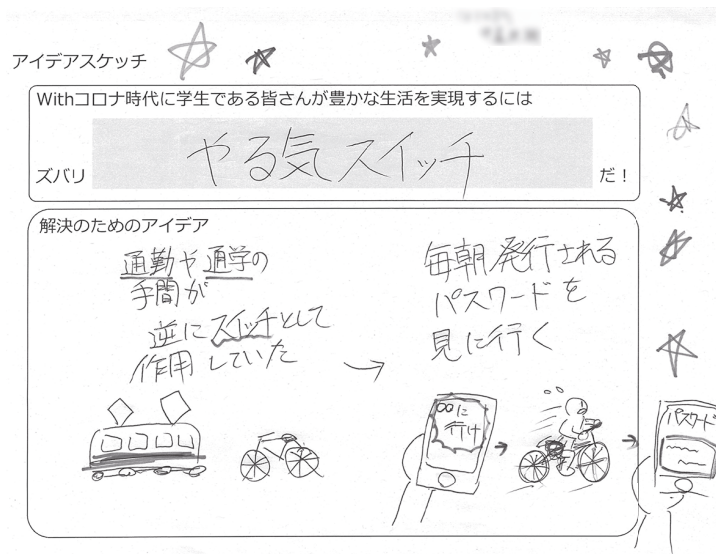 アイデアスケッチ
Withコロナ時代に学生である皆さんが豊かな生活を実現するには
ズバリ やる気スイッチ だ！
解決のためのアイデア
通勤や通学の
手間が
逆にスイッチとして
作用していた
毎朝発行される
パスワードを
見に行く
○○に
行け
パスワード